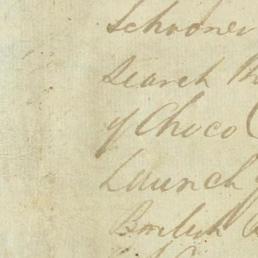 Schooner
Search
of Choco
Launch
British